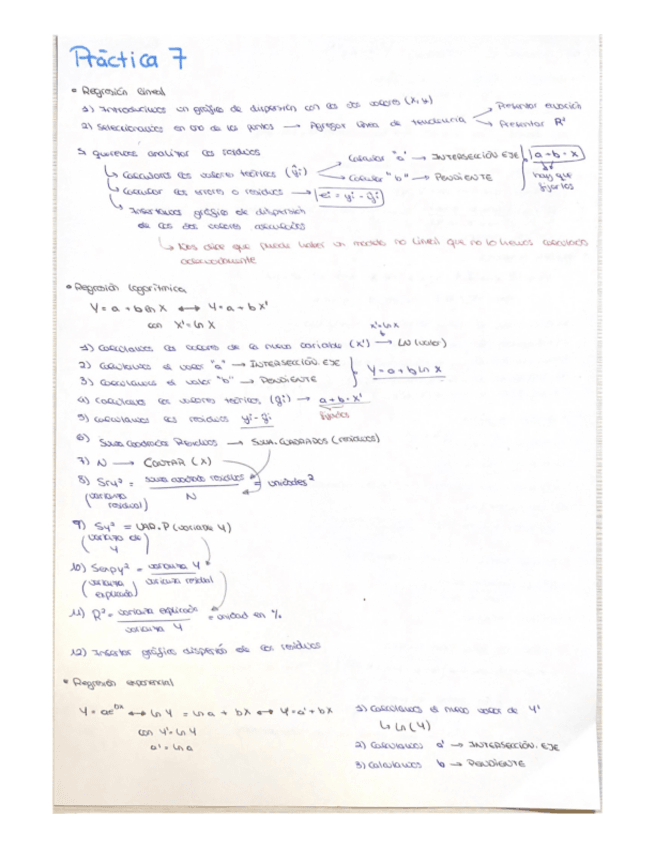 Práctica 7
• Regresión lineal
1) Introducimos un gráfico de dispersión con los dos valores (X, Y)
2) Seleccionamos en uno de los puntos → Agregar línea de tendencia
Presentar ecuación
Presentar R²
Si queremos analizar los residuos
↳ Calculamos los valores teóricos (ŷi)
Calcular "a" → INTERSECCIÓN EJE
Calcular "b" → PENDIENTE
a + b · x
hay que fijarlos
↳ Calcular los errores o residuos → ei = yi - ŷi
↳ Insertamos gráfico de dispersión
de los dos valores calculados
↳ Nos dice que puede haber un modelo no lineal que no lo hemos calculado
adecuadamente
• Regresión logarítmica
Y = a + b ln X ↔ Y = a + b X'
con X' = ln X
X' = ln X
1) Calculamos los valores de la nueva variable (X') → LN (valor)
2) Calculamos el valor "a" → INTERSECCIÓN. EJE
3) Calculamos el valor "b" → PENDIENTE
Y = a + b ln X
4) Calculamos los valores teóricos (ŷi) → a + b · x'
fijarlos
5) Calculamos los residuos yi - ŷi
6) Suma cuadrados Residuos → SUMA.CUADRADOS (residuos)
7) N → CONTAR (X)
8) Sry² = suma cuadrado residuos / N = unidades²
(varianza residual)
9) Sy² = VAR.P (variable Y)
(varianza de Y)
10) = varianza Y - varianza residual
(varianza explicada)
11) R² = varianza explicada / varianza Y = unidad en %
12) Insertar gráfico dispersión de los residuos
• Regresión exponencial
Y = ae^bx ↔ ln Y = ln a + bX ↔ Y' = a' + bX
con Y' = ln Y
a' = ln a
1) Calculamos el nuevo valor de Y'
↳ Ln (Y)
2) Calculamos a' → INTERSECCIÓN. EJE
3) Calculamos b → PENDIENTE